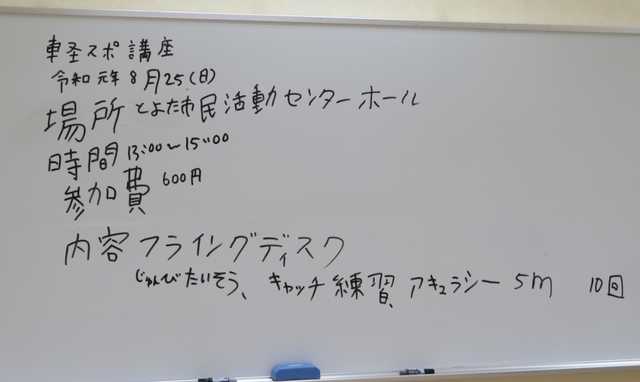 車経スポ講座
令和元年8月25(日)
場所 とよた市民活動センターホール
時間 13:00~15:00
参加費 600円
内容 フライングディスク
じゅんびたいそう、キャッチ練習、アキュラシー 5m 10回